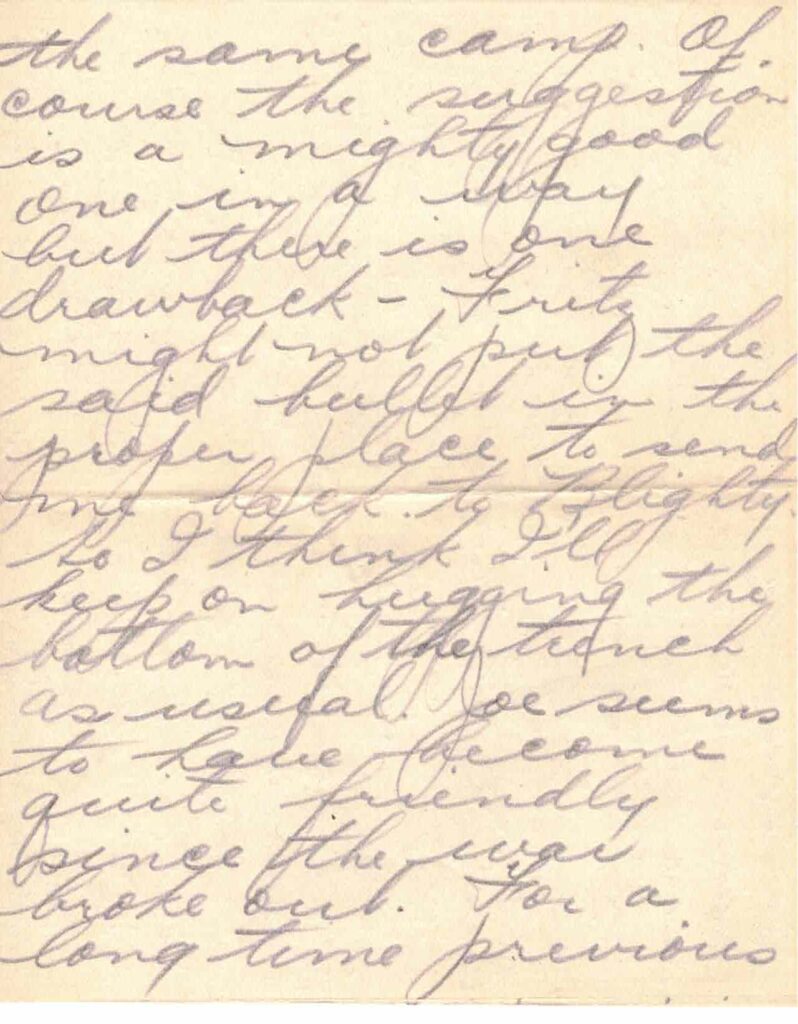 the same camp. Of
course the suggestion
is a mighty good
one in a way
but there is one
drawback - Fritz
might not put the
said bullet in the
proper place to send
me back to Blighty.
So I think I'll
keep on hugging the
bottom of the trench
as usual. Joe seems
to have become
quite friendly
since the war
broke out. For a
long time previous